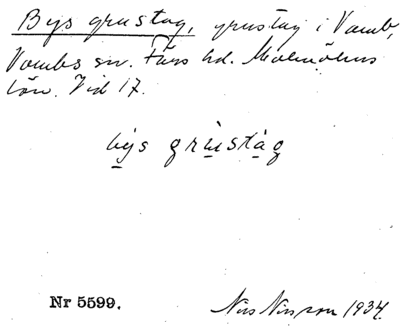 Bys grustag, grustag i Vomb,
Vombs sn. Färs hd. Malmöhus
län. Vid 17.
bys grustag
Nr 5599.
Nils Nilsson 1934.